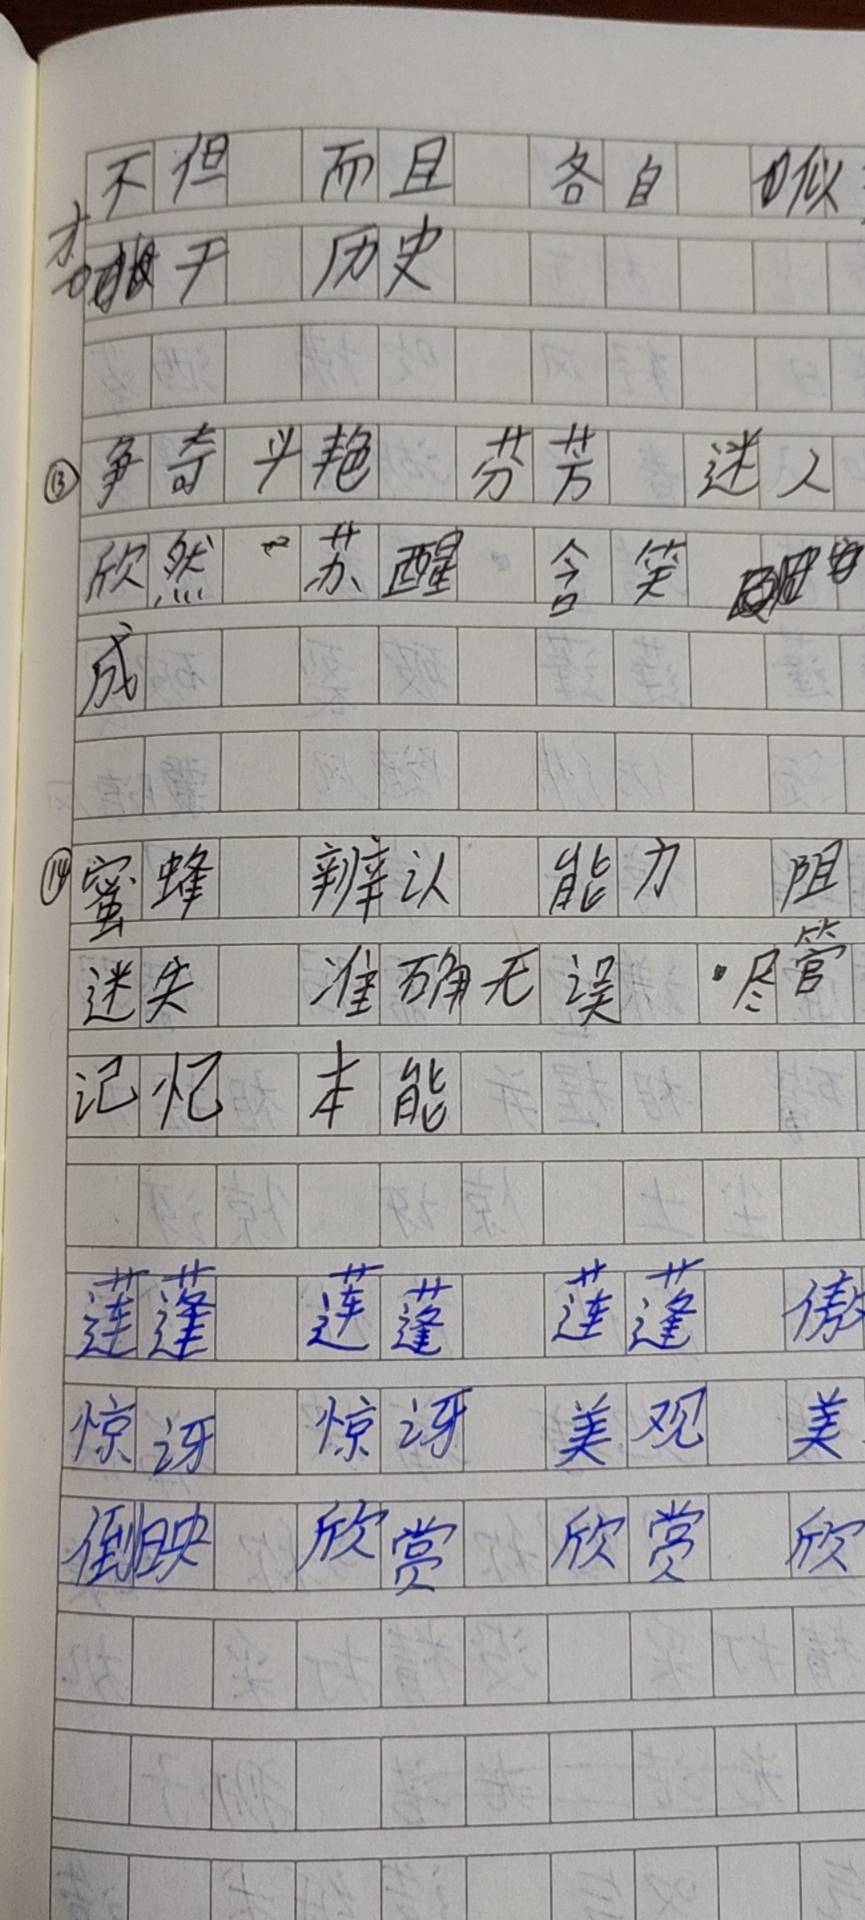 不但 而且 各自 似
才 于 历史
⑬ 争奇斗艳 芬芳 迷人
欣然 苏醒 含笑
成
⑭ 蜜蜂 辨认 能力 阻
迷失 准确无误 尽管
记忆 本能
莲蓬 莲蓬 莲蓬 傲
惊讶 惊讶 美观 美
倒映 欣赏 欣赏 欣